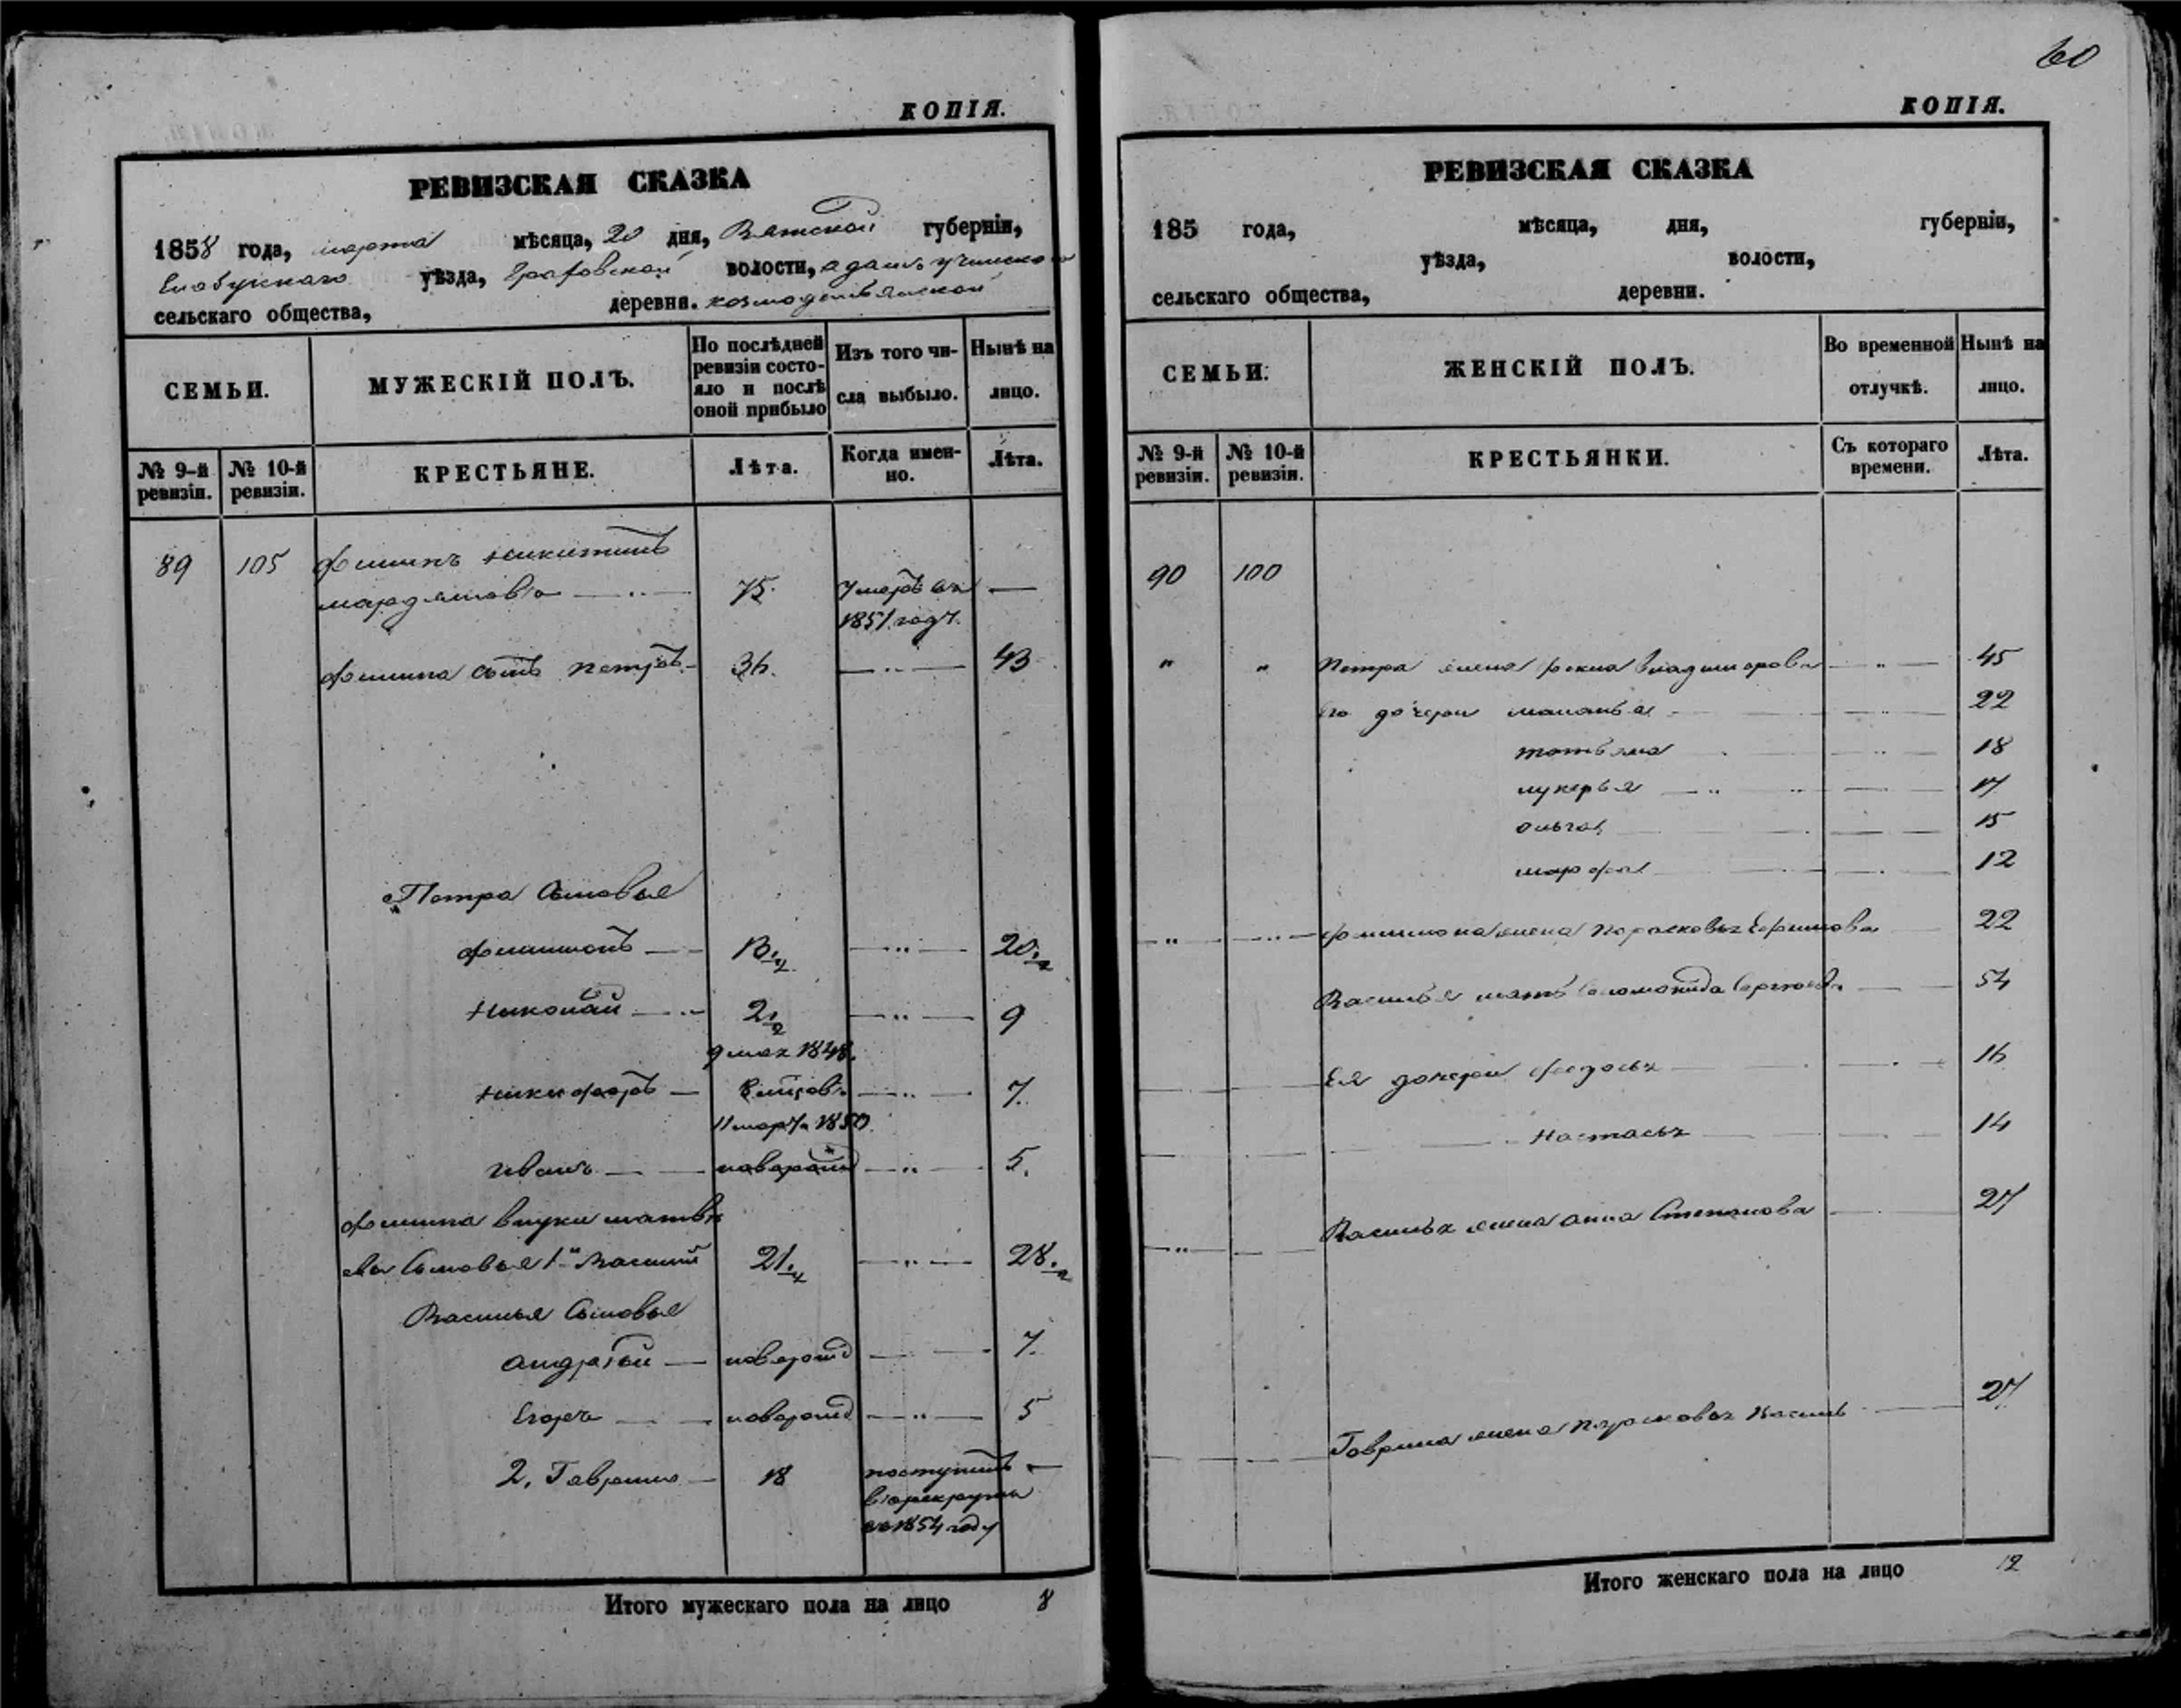 КОПІЯ.
РЕВИЗСКАЯ СКАЗКА
1858 года, марта мѣсяца, 20 дня, Вятской губерніи,
Елабускаго уѣзда, Граховской волости,
сельскаго общества, деревни. козмодемьянской
СЕМЬИ.
МУЖЕСКІЙ ПОЛЪ.
По послѣдней ревизіи состо-
яло и послѣ
оной прибыло
Изъ того чи-
сла выбыло.
Нынѣ на
лицо.
№ 9-й ревизіи.
№ 10-й ревизіи.
КРЕСТЬЯНЕ.
Лѣта.
Когда имен-
но.
Лѣта.
89 105 Филипъ Никитинъ
75. умеръ въ —
1851 году.
Филипа сынъ Петръ 36. — „ — 43
Петра Сыновья
Филимонъ — 13 1/4 — „ — 20 1/2
Николай — 2 1/2 — „ — 9
9 мая 1848.
Никифоръ — — „ — 7.
11 марта 1850
Иванъ — новорожд — „ — 5.
Филипа внуки матвѣ
ева Сыновья 1й Василий 21 1/4 — „ — 28 1/2
Василья Сыновья
Андрѣй — новорожд — 7.
Егоръ — новорожд — „ — 5
2. Гаврило — 18 поступилъ —
въ рекруты
въ 1854 году
Итого мужескаго пола на лицо 8
60
КОПІЯ.
РЕВИЗСКАЯ СКАЗКА
185 года, мѣсяца, дня, губерніи,
уѣзда, волости,
сельскаго общества, деревни.
СЕМЬИ.
ЖЕНСКІЙ ПОЛЪ.
Во временной
отлучкѣ.
Нынѣ на
лицо.
№ 9-й ревизіи.
№ 10-й ревизіи.
КРЕСТЬЯНКИ.
Съ котораго
времени.
Лѣта.
90 100
„ „ Петра жена фекла владимерова — „ — 45
его дочери маланья 22
татьяна 18
лукерья 17
ольга 15
марфа 12
Филимона жена Парасковья Ефимова 22
Василья мать Соломонида Сергеева 54
Ея дочери федосья 16
Настасья 14
Василья жена анна Степанова 27
Гаврила жена парасковья Василь 27
Итого женскаго пола на лицо 12